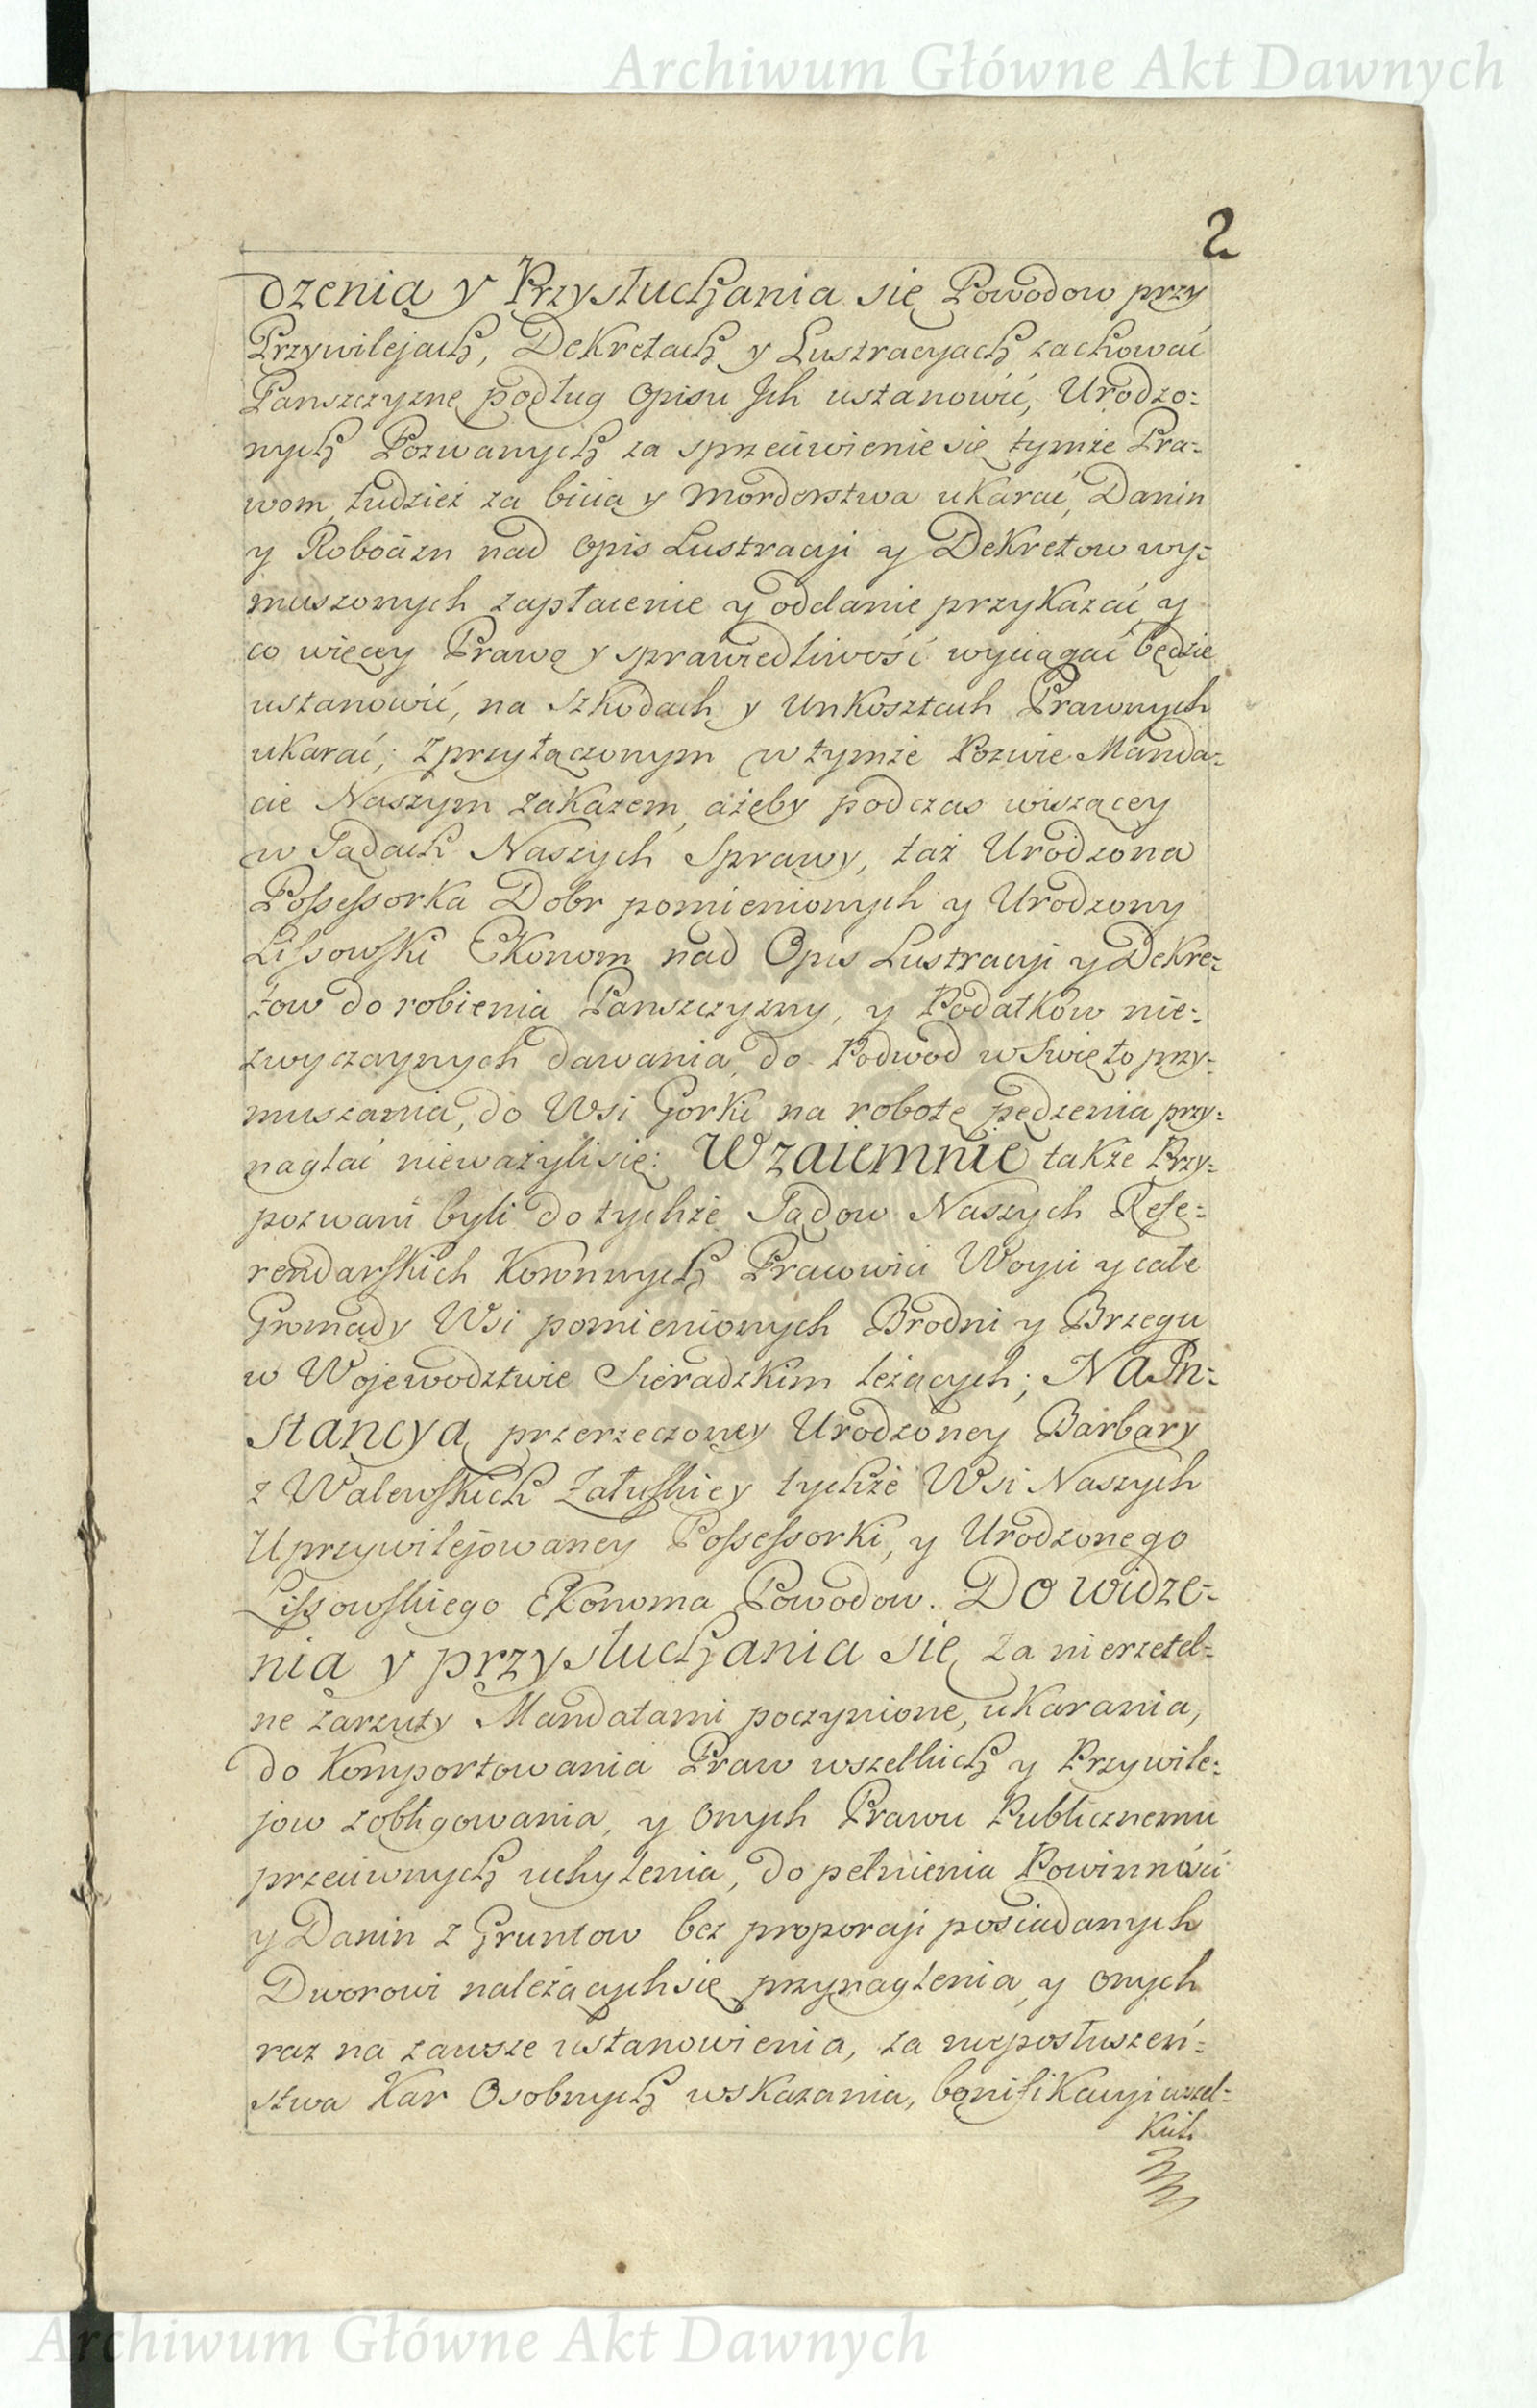 Archiwum Główne Akt Dawnych
2
dzenia y Przysłuchania się Powodow przy
Przywilejach, Dekretach y Lustracyjach zachować
Panszczyznę podług Opisu Jch ustanowić, Urodzo:
nych Pozwanych za sprzeciwienie się tymże Pra:
wom, tudzież za bicia y morderstwa ukarać, Danin
y Robocizn nad Opis Lustracyi y Dekretow wy:
muszonych zapłacenie y oddanie przykazać y
co więcey Prawo y sprawiedliwość wyciągać będzie
ustanowić, na Szkodach y Unkosztach Prawnych
ukarać; z przyłączonym w tymże Pozwie Manda:
cie Naszym zakazem, ażeby podczas wiszącey
w Sądach Naszych Sprawy, taż Urodzona
Possessorka Dobr pomienionych y Urodzony
Lissowski Ekonom nad Opis Lustracyi y Dekre:
tow do robienia Panszczyzny, y Podatków nie:
zwyczaynych dawania, do Podwod w Swięto przy:
muszania, do Wsi Gorki na robotę pędzenia przy:
naglać nieważyli się: Wzaiemnie także Przy:
pozwani byli do tychże Sądow Naszych Refe:
rendarskich Koronnych Pracowici Woyci y całe
Gromady Wsi pomienionych Brodni y Brzegu
w Wojewodztwie Sieradzkim leżących; Na In:
stancyą przerzeczoney Urodzoney Barbary
z Walewskich Załuskiey tychże Wsi Naszych
Uprzywilejowaney Possessorki, y Urodzonego
Lissowskiego Ekonoma Powodow. Do widze:
nia y przysłuchania się za nierzetel:
ne zarzuty Mandatami poczynione, ukarania,
do Komportowania Praw wszelkich y Przywile:
jow zobligowania, y onych Prawu Publicznemu
przeciwnych uchylenia, do pełnienia Powinności
y Danin z Gruntow bez proporcyi posiadanych
Dworowi należących się przynaglenia, y onych
raz na zawsze ustanowienia, za nieposłuszeń:
stwa Kar Osobnych wskazania, bonifikacyi wszel:
kich
Archiwum Główne Akt Dawnych